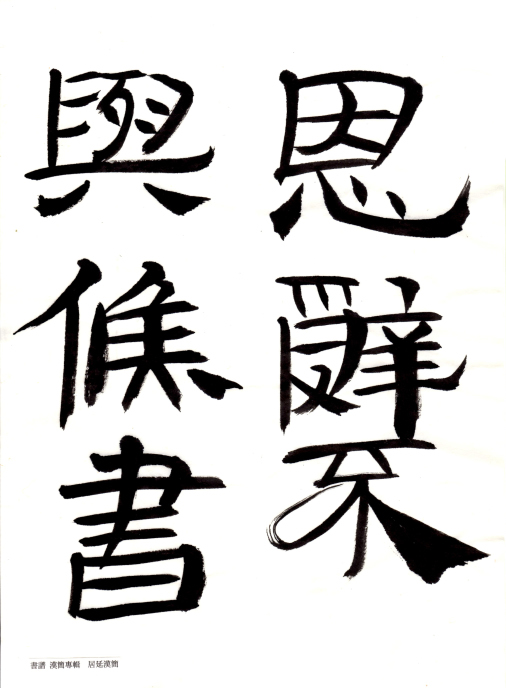 恩辭不
與候書
書譜 漢簡專輯 居延漢簡